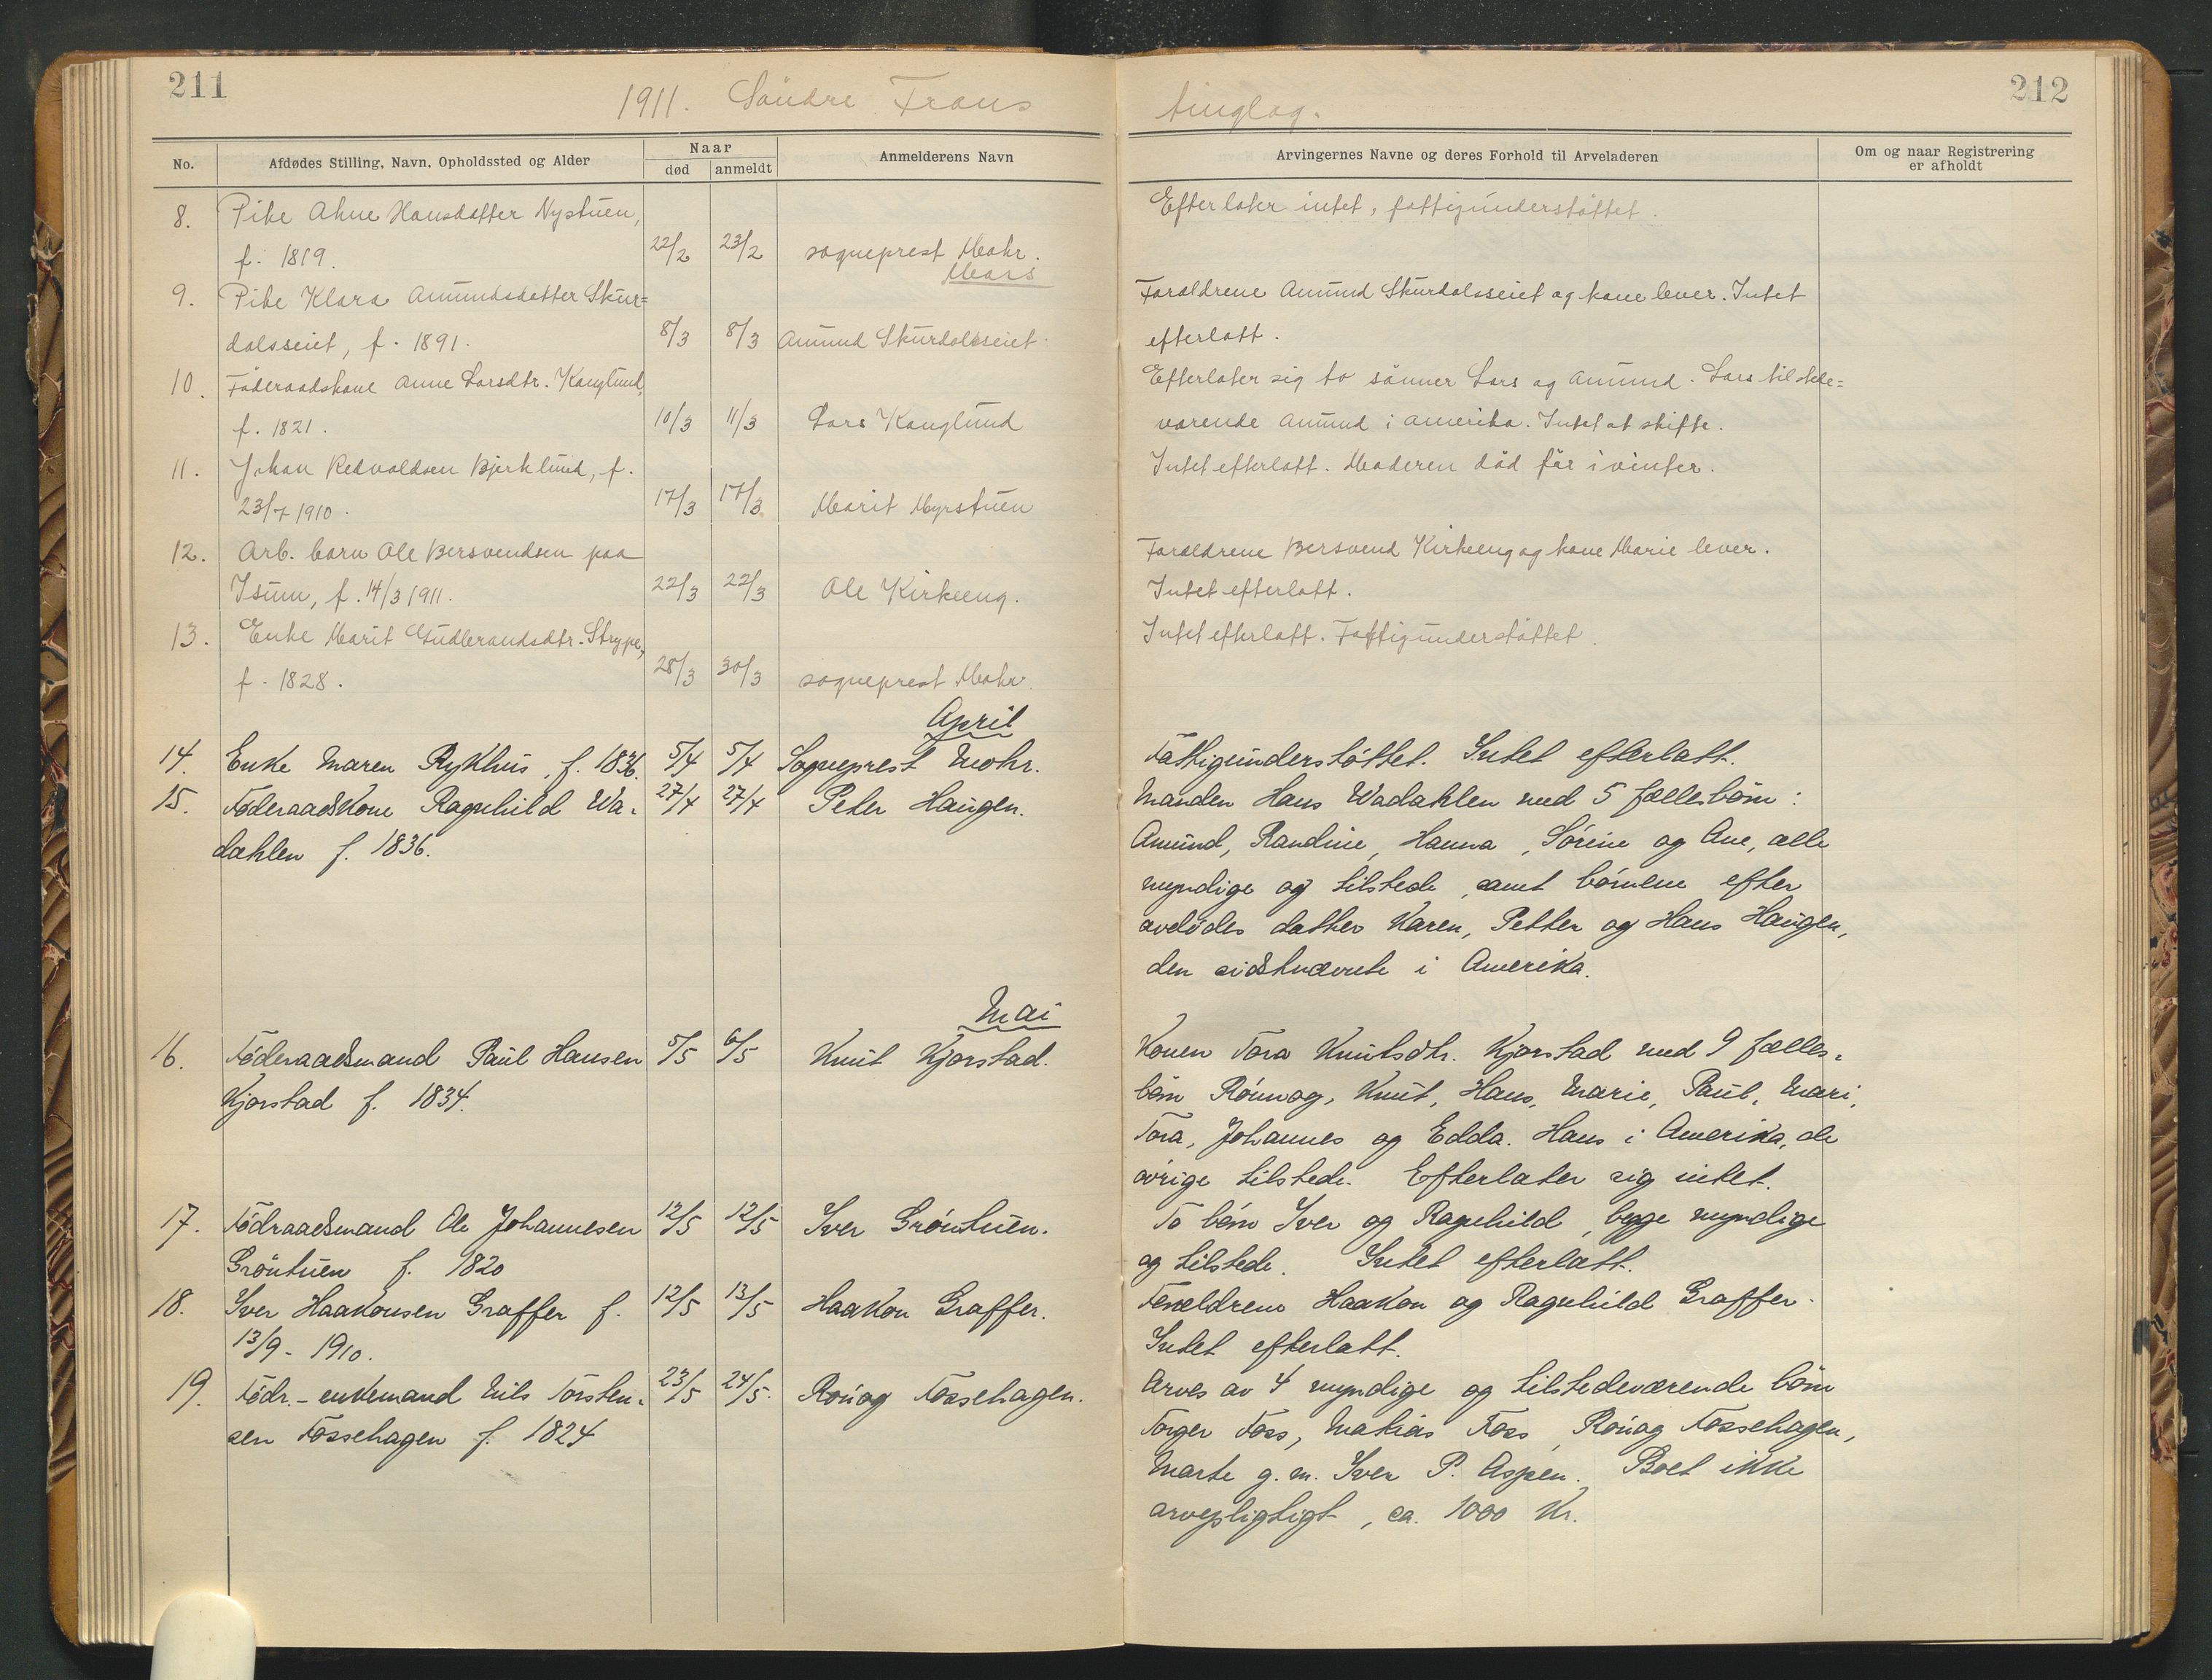 211
1911. Söndre Frons
No.
Afdødes Stilling, Navn, Opholdssted og Alder
Naar
død
anmeldt
Anmelderens Navn
8. Pike Hansdatter Nystuen,
f. 1819. 22/2 23/2 sogneprest Mohr.
Mars
9. Pike Klara Amundsdatter Skur=
dalsseiet, f. 1891. 8/3 8/3 Amund Skurdalsseiet
10. Föderaadskone Anne Larsdtr. Kanglund,
f. 1821. 10/3 11/3 Lars Kanglund
11. Johan Redvaldsen Bjerklund, f.
23/7 1910. 17/3 17/3 Marit Myrstuen
12. Arb. barn Ole Bersvendsen paa
Isum, f. 14/3 1911. 22/3 22/3 Ole Kirkeeng.
13. Enke Marit Gudbrandsdtr. Strype,
f. 1828. 28/3 30/3 sogneprest Mohr.
April
14. Enke Maren Rykhus, f. 1836. 5/4 5/4 Sogneprest Mohr.
15. Føderaadskone Ragnhild Wa- 27/4 27/4 Peter Haugen.
dahlen f. 1836.
Mai
16. Føderaadsmand Paul Hansen 5/5 6/5 Knut Kjorstad.
Kjorstad f. 1834.
17. Födraadsmand Ole Johannesen 12/5 12/5 Iver Gröntuen.
Gröntuen f. 1820
18. Iver Haakonsen Graffer f. 12/5 13/5 Haakon Graffer.
13/9 - 1910.
19. Födr. - enkemand Nils Torsten- 23/5 24/5 Rönog Fossehagen.
sen Fossehagen f. 1824
212
tinglag.
Arvingernes Navne og deres Forhold til Arveladeren
Om og naar Registrering
er afholdt
Efterlater intet, fattigunderstöttet.
Foraldrene Amund Skurdalsseiet og kone lever. Intet
efterlatt.
Efterlater sig to sönner Lars og Amund. Lars tilstede=
værende Amund i Amerika. Intet at skifte.
Intet efterlatt. Moderen död för i vinter.
Foraldrene Bersvend Kirkeeng og kone Marie lever.
Intet efterlatt.
Intet efterlatt. Fattigunderstöttet.
Fattigunderstøttet. Intet efterlatt.
Manden Hans Wadahlen med 5 fællesbörn:
Amund, Randine, Hanna, Sörine og Ane, alle
myndige og tilstede, samt börnene efter
avdödes datter Karen, Petter og Hans Haugen,
den sidstnævnte i Amerika.
Konen Tora Knutsdtr. Kjorstad med 9 fælles-
börn Rönnog, Knut, Hans, Marie, Paul, Mari,
Tora, Johannes og Edda. Hans i Amerika, de
övrige tilstede. Efterlater sig intet.
To börn Iver og Ragnhild, begge myndige
og tilstede. Intet efterlatt.
Foreldrene Haakon og Ragnhild Graffer.
Intet efterlatt.
Arves av 4 myndige og tilstedeværende börn
Torger Foss, Matias Foss, Rönog Fossehagen,
Marte g. m. Iver P. Aspen. Boet ikke
arvepligtigt, ca. 1000 Kr.